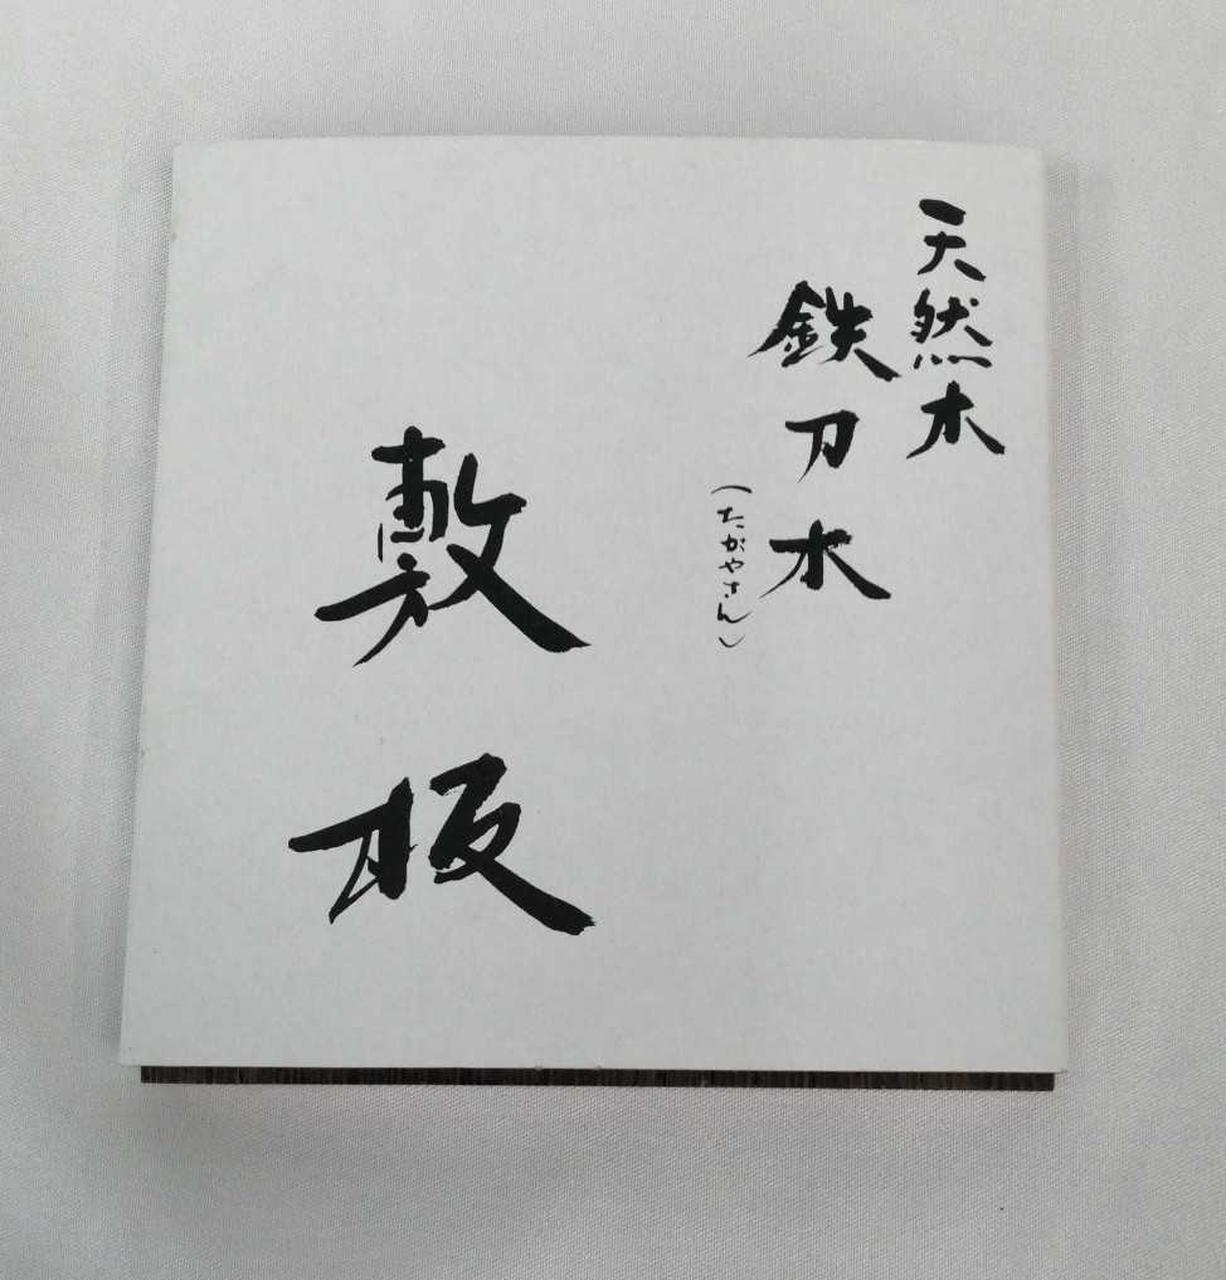 天然木
鉄刀木
(たがやさん)
敷板